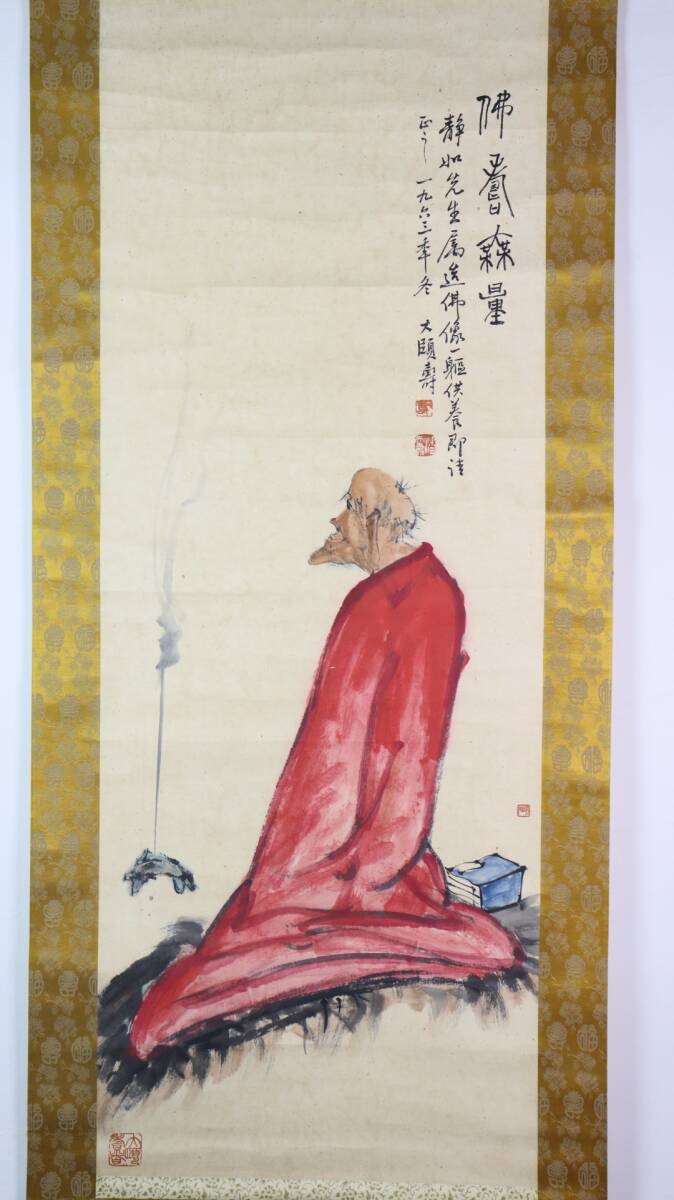 佛壽無量
靜如先生属造佛像一軀供養即請
正之 一九六三年冬 大頤壽